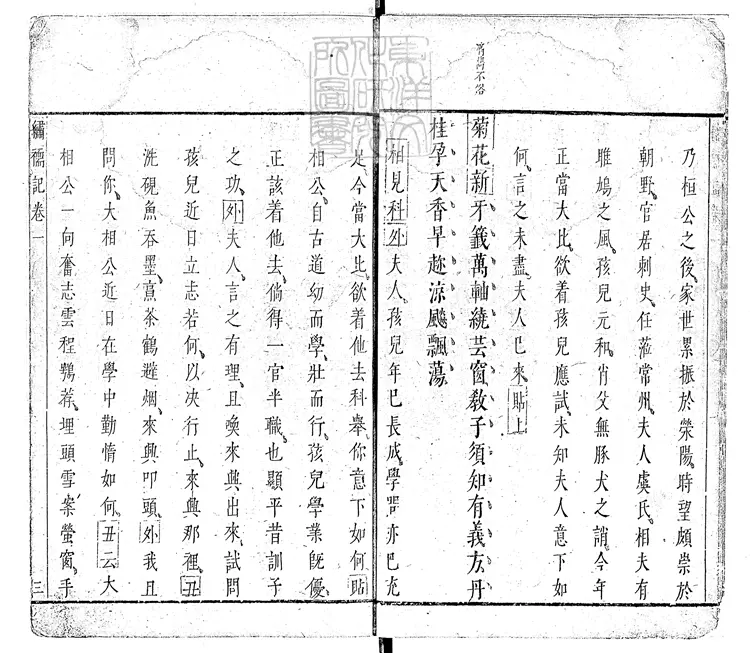 乃桓公之後家世累振於滎陽時望頗崇於
朝野官居刺史任蒞常州夫人虞氏相夫有
雎鳩之風孩兒元和肖父無豚犬之誚今年
正當大比欲着孩兒應試未知夫人意下如
何言之未盡夫人已來貼上
菊花新牙籤萬軸繞芸窗教子須知有義方丹
桂孕天香早趂涼飈飄蕩
相見科外夫人孩兒年已長成學業亦已充
足今當大比欲着他去科舉你意下如何貼
相公自古道幼而學壯而行孩兒學業既優
正該着他去倘得一官半職也顯平昔訓子
之功外夫人言之有理且喚來興出來試問
孩兒近日立志若何以决行止來興那裡丑
洗硯魚吞墨烹茶鶴避烟來興叩頭外我且
問你大相公近日在學中勤惰如何丑云大
相公一向奮志雲程鶚薦埋頭雪案螢窗手
繡襦記卷一
三